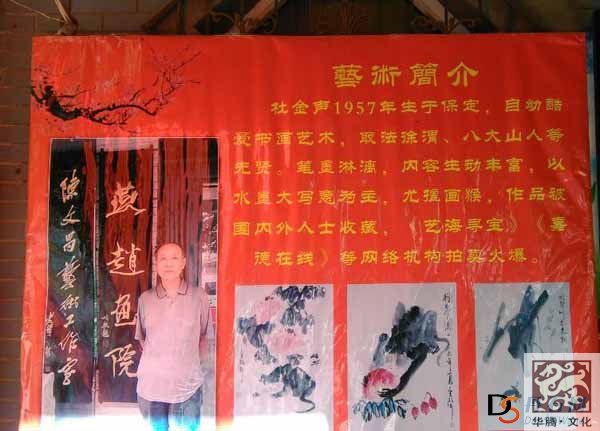 藝術簡介
杜金声1957年生于保定，自幼酷
爱书画艺术，取法徐渭、八大山人等
先贤。笔墨淋漓，内容生动丰富，以
水墨大写意为主，尤擅画猴，作品被
国内外人士收藏，《艺海寻宝》《嘉
德在线》等网络机构拍卖火爆。
燕趙画院
陳文昌藝術工作室
DS
华腾·文化